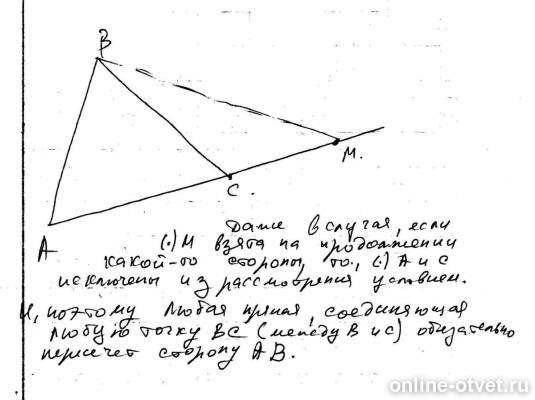 B
M.
C.
A
Даже в случая, если
(.) М взята на продолжении
какой-то стороны, то, (.) А и С
исключены из рассмотрения условием.
И, поэтому любая прямая, соединяющая
любую точку ВС (между В и С) обязательно
пересечет сторону АВ.
online-otvet.ru